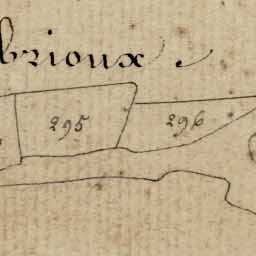 brioux .
295
296